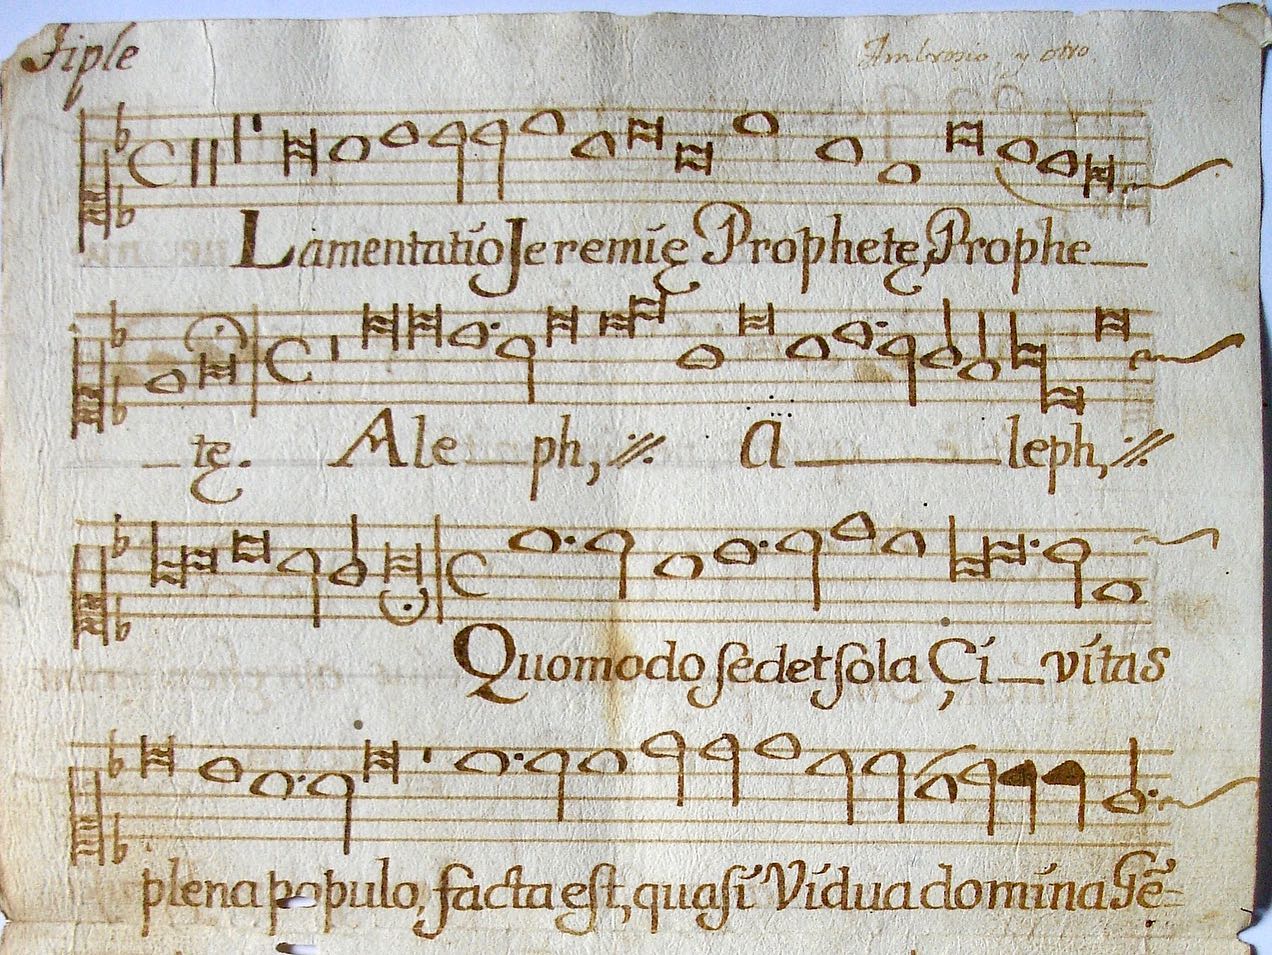 Tiple
Ambrosio, y otro.
Lamentatio Jeremię Prophetę, Prophe
tę. Aleph, //. A leph, //.
Quomodo sedet sola Çi vitas
plena populo, facta est, quasi Vidua domina Gē-